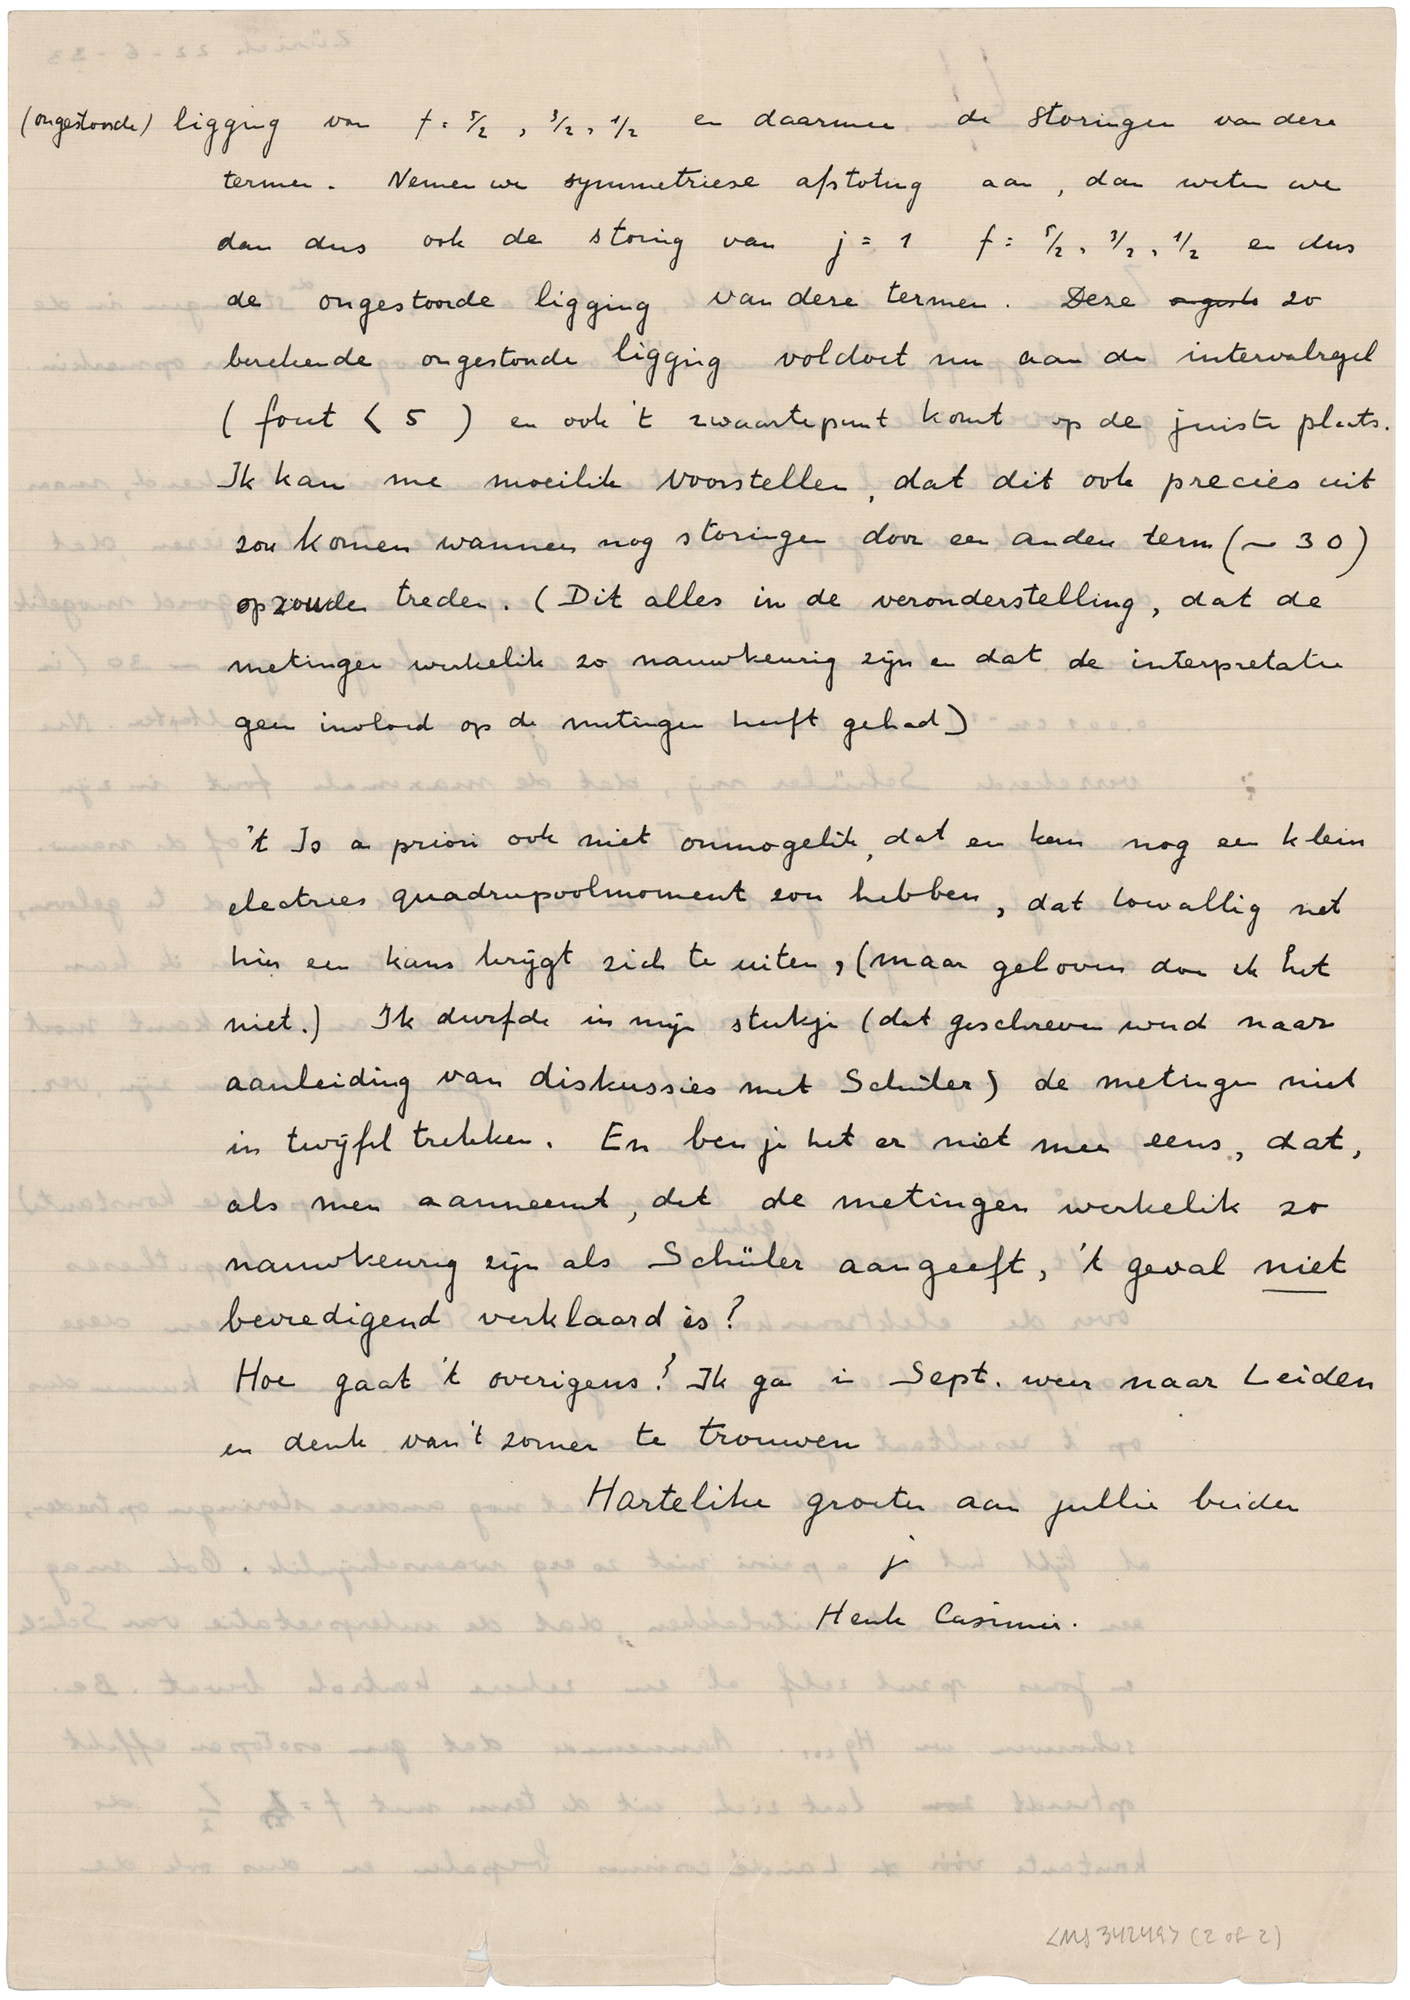 (ongestoorde) ligging van f = 5/2, 3/2, 1/2 en daarmee de storingen van deze
termen. Nemen we symmetriese afstoting aan, dan weten we
dan dus ook de storing van j = 1 f = 5/2, 3/2, 1/2 en dus
de ongestoorde ligging van deze termen. Deze zo
berekende ongestoorde ligging voldoet nu aan de intervalregel
(fout < 5) en ook 't zwaartepunt komt op de juiste plaats.
Ik kan me moeilik voorstellen, dat dit ook precies uit
zou komen wanneer nog storingen door een andere term (~ 30)
op zouden treden. (Dit alles in de veronderstelling, dat de
metingen werkelik zo nauwkeurig zijn en dat de interpretatie
geen invloed op de metingen heeft gehad)
't Is a priori ook niet onmogelik, dat en kern nog een klein
electries quadrupoolmoment zou hebben, dat toevallig net
hier een kans krijgt zich te uiten, (maar geloven doe ik het
niet.) Ik durfde in mijn stukje (dat geschreven werd naar
aanleiding van diskussies met Schüler) de metingen niet
in twijfel trekken. En ben je het er niet mee eens, dat,
als men aanneemt, dat de metingen werkelik zo
nauwkeurig zijn als Schüler aangeeft, 't geval niet
bevredigend verklaard is?
Hoe gaat 't overigens? Ik ga in Sept. weer naar Leiden
en denk van 't zomer te trouwen
Hartelike groeten aan jullie beiden
je
Henk Casimir.
LMS 342497 (2 of 2)